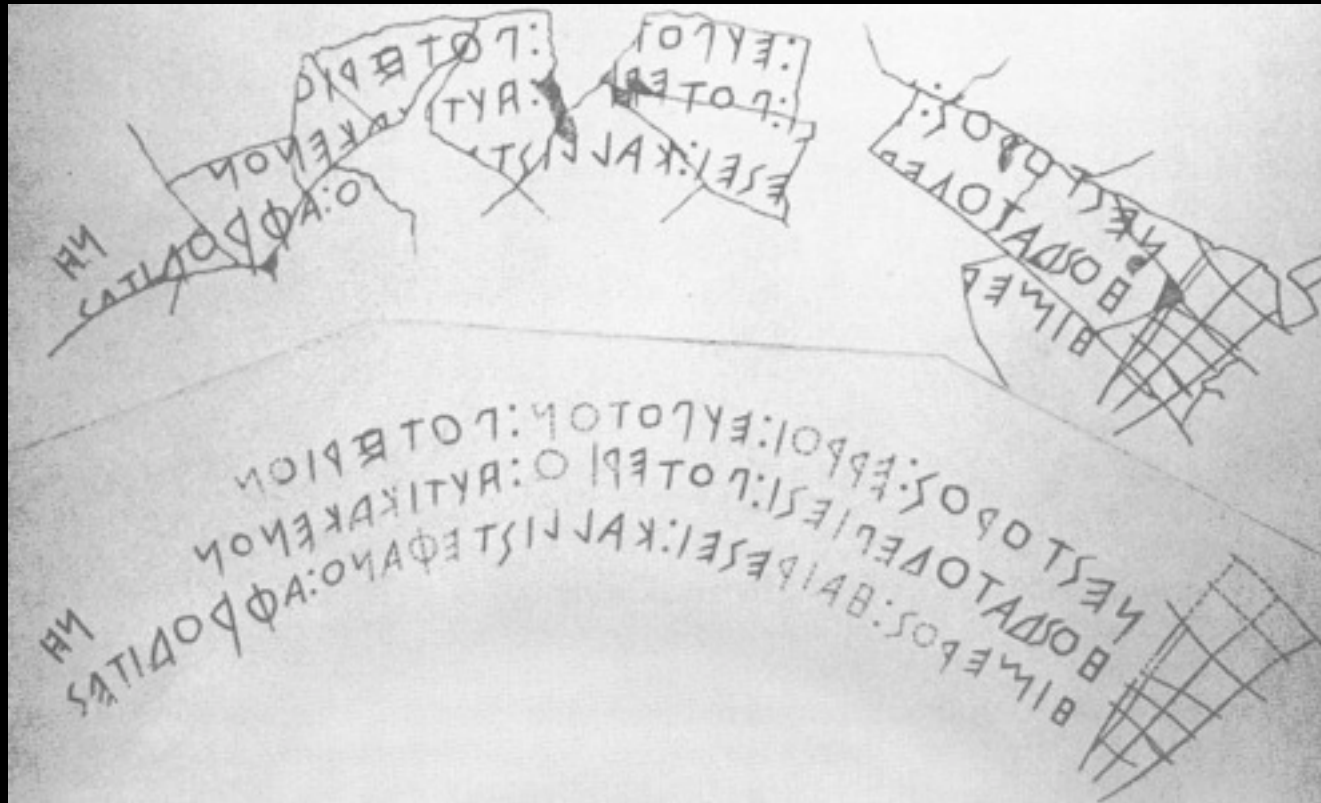 ΝΕΣΤΟΡΟΣ: :ΕΥΠΟΤ :ΠΟΤΕΡΙΟ
ΗΟΣΔΑΤΟΔΕΡ :ΠΟΤΕΡΙ :ΑΥΤ ΚΑΚΕΝΟΝ
ΗΙΜΕΡ ΕΣΕΙ:ΚΑΛΛΙΣΤ Ο:ΑΦΡΟΔΙΤΕΣ
ΝΗ
ΝΕΣΤΟΡΟΣ:ΕΡΡΟΙ:ΕΥΠΟΤΟΝ:ΠΟΤΕΡΙΟΝ
ΗΟΣΔΑΤΟΔΕΠΙΕΣΙ:ΠΟΤΕΡΙΟ:ΑΥΤΙΚΑΚΕΝΟΝ
ΗΙΜΕΡΟΣ:ΗΑΙΡΕΣΕΙ:ΚΑΛΛΙΣΤΕΦΑΝΟ:ΑΦΡΟΔΙΤΕΣ
ΝΗ